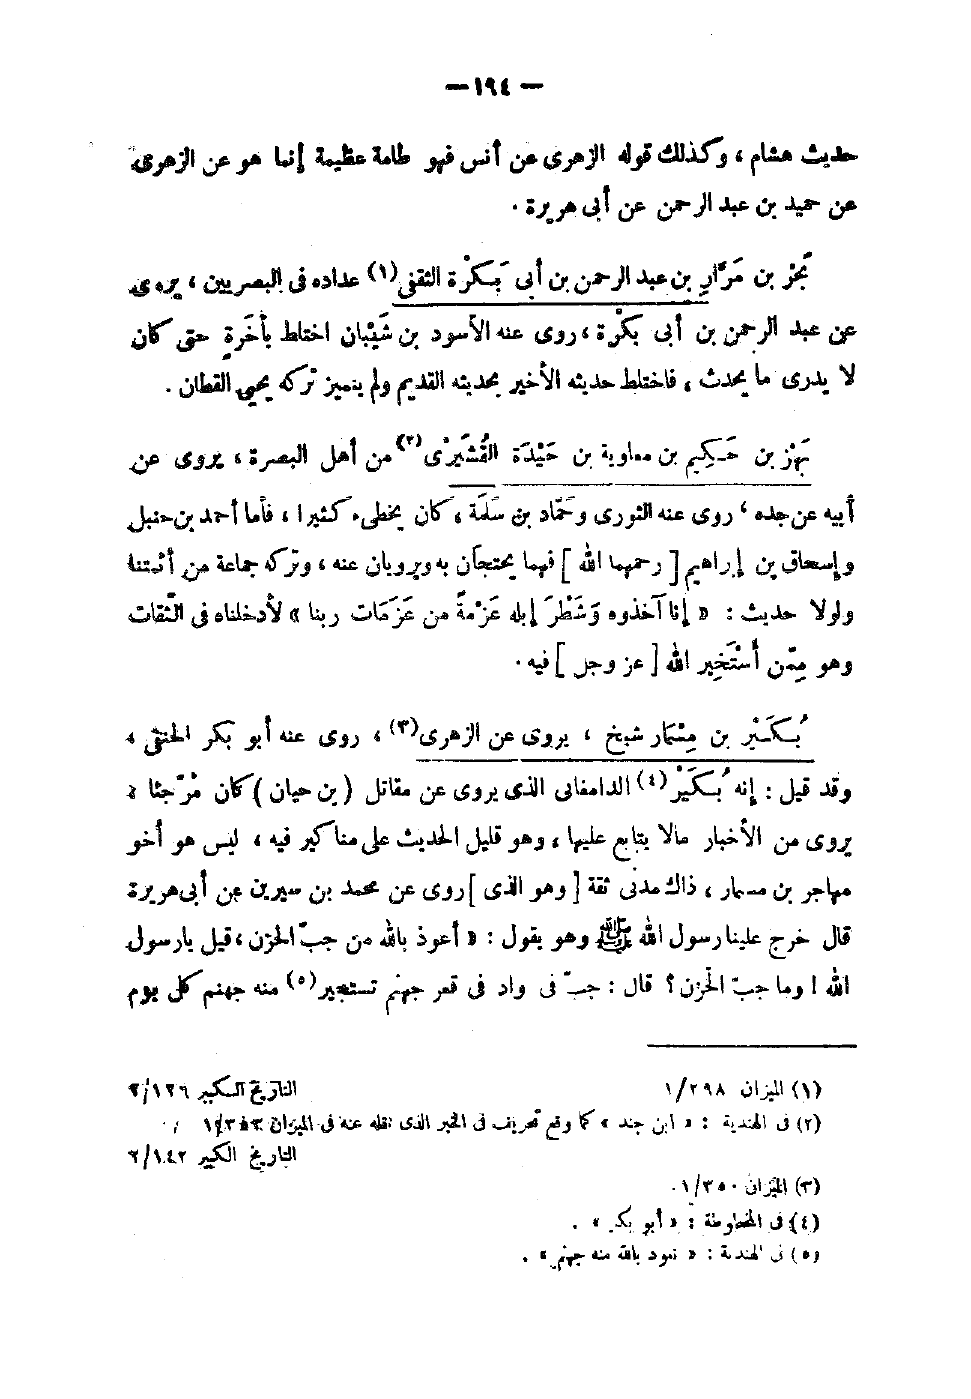 — ١٩٤ —
حديث هشام ، وكذلك قوله الزهرى عن أنس فهو طامة عظيمة إنما هو عن الزهرى
عن حميد بن عبد الرحمن عن أبى هريرة .
بَحْر بن مَرَّارِ بن عبد الرحمن بن أبى بَكْرة الثقفى (١) عداده فى البصريين ، يروى
عن عبد الرحمن بن أبى بكْرَة ، روى عنه الأسود بن شَيْبان اختلط بأَخَرَةٍ حتى كان
لا يدرى ما يحدث ، فاختلط حديثه الأخير بحديثه القديم ولم يتميز تركه يحيى القطان .
بَهْز بن حَكِيم بن معاوية بن حَيْدَة القُشَيْرى (٢) من أهل البصرة ، يروى عن
أبيه عن جده ، روى عنه الثورى وحَمَّاد بن سَلَمَة ، كان يخطىء كثيرا ، فأما أحمد بن حنبل
وإسحاق بن إبراهيم [ رحمهما الله ] فهما يحتجان به ويرويان عنه ، وتركه جماعة من أئمتنا
ولولا حديث : « إنا آخذوه وَشَطْرَ إبله عَزْمةً من عَزَمَات ربنا » لأدخلناه فى الثقات
وهو مِمّن أَسْتَخِير الله [ عز وجل ] فيه .
بُكَيْر بن مِسْمَار شيخ ، يروى عن الزهرى (٣) ، روى عنه أبو بكر الحنفى ،
وقد قيل : إنه بُكَيْر (٤) الدامغانى الذى يروى عن مقاتل ( بن حيان ) كان مُرْجئا ،
يروى من الأخبار مالا يتابع عليها ، وهو قليل الحديث على مناكير فيه ، ليس هو أخو
مهاجر بن مسمار ، ذاك مدنى ثقة [ وهو الذى ] روى عن محمد بن سيرين عن أبى هريرة
قال خرج علينا رسول الله ﷺ وهو يقول : « أعوذ بالله من جبّ الحزن ، قيل يارسول
الله ! وما جبّ الحزن ؟ قال : جبّ فى واد فى قعر جهنم تستجير (٥) منه جهنم كل يوم
(١) الميزان ١/٢٩٨ التاريخ الكبير ٢/١٢٦
(٢) فى الهندية : « ابن جند » كما وقع تحريف فى الخبر الذى نقله عنه فى الميزان
التاريخ الكبير ٢/١٤٢
(٣) الميزان ١/٣٥٠ .
(٤) فى المخطوطة : « أبو بكر » .
(٥) فى الهندية : « تعوذ بالله منه جهنم » .